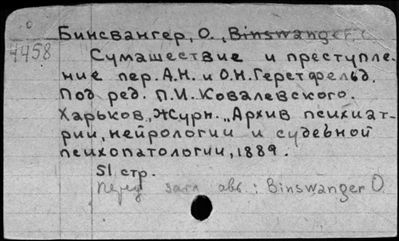 Бинсвангер, О., Binswanger.
4458
Сумашествие и преступле-
ние пер. А.Н. и О.Н. Герстфельд.
Под ред. П.И. Ковалевского.
Харьков, Журн. „Архив психиат-
рии, нейрологии и судебной
психопатологии, 1889.
51 стр.
перед загл авт: Binswanger O.